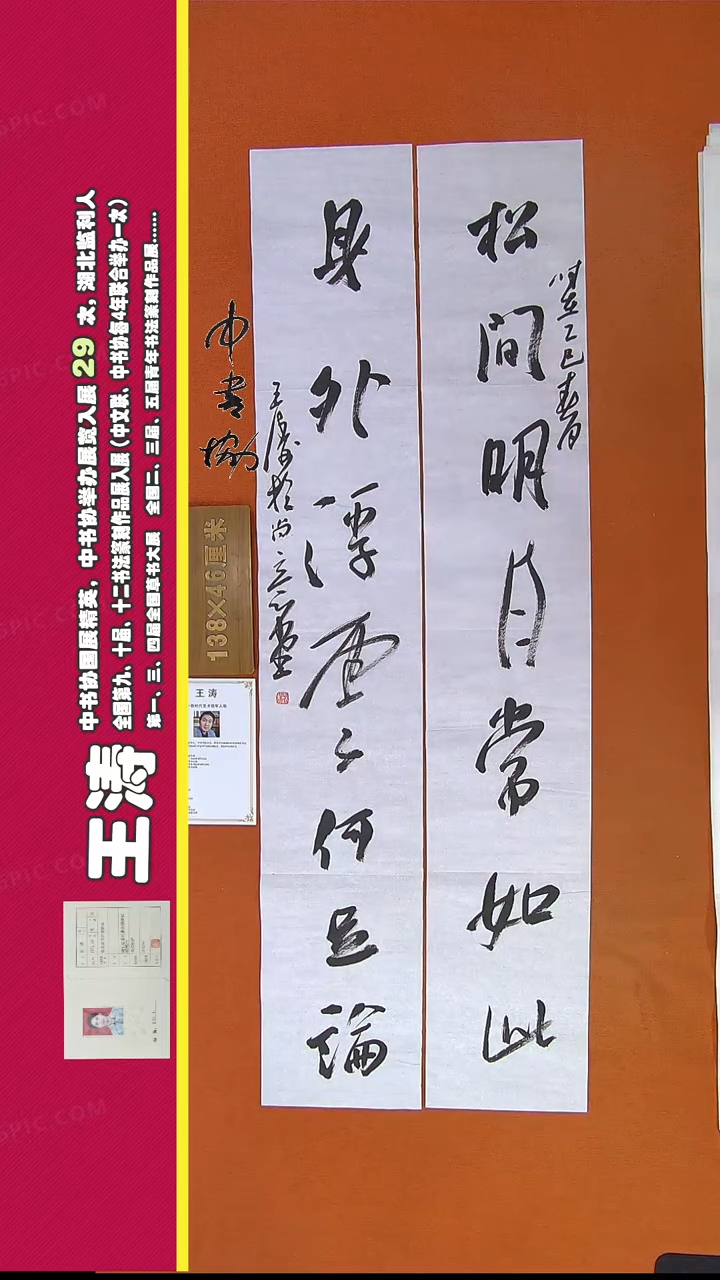 松間明月常如此
时在乙巳春月
身外浮雲何足論
王涛於尚
中書協
138×46厘米
王涛
王涛
中书协国展精英，中书协举办展赛入展 29 次，湖北监利人
全国第九、十届、十二书法篆刻作品展入展（中文联、中书协每4年联合举办一次）
第一、三、四届全国草书大展 全国二、三届、五届青年书法篆刻作品展……